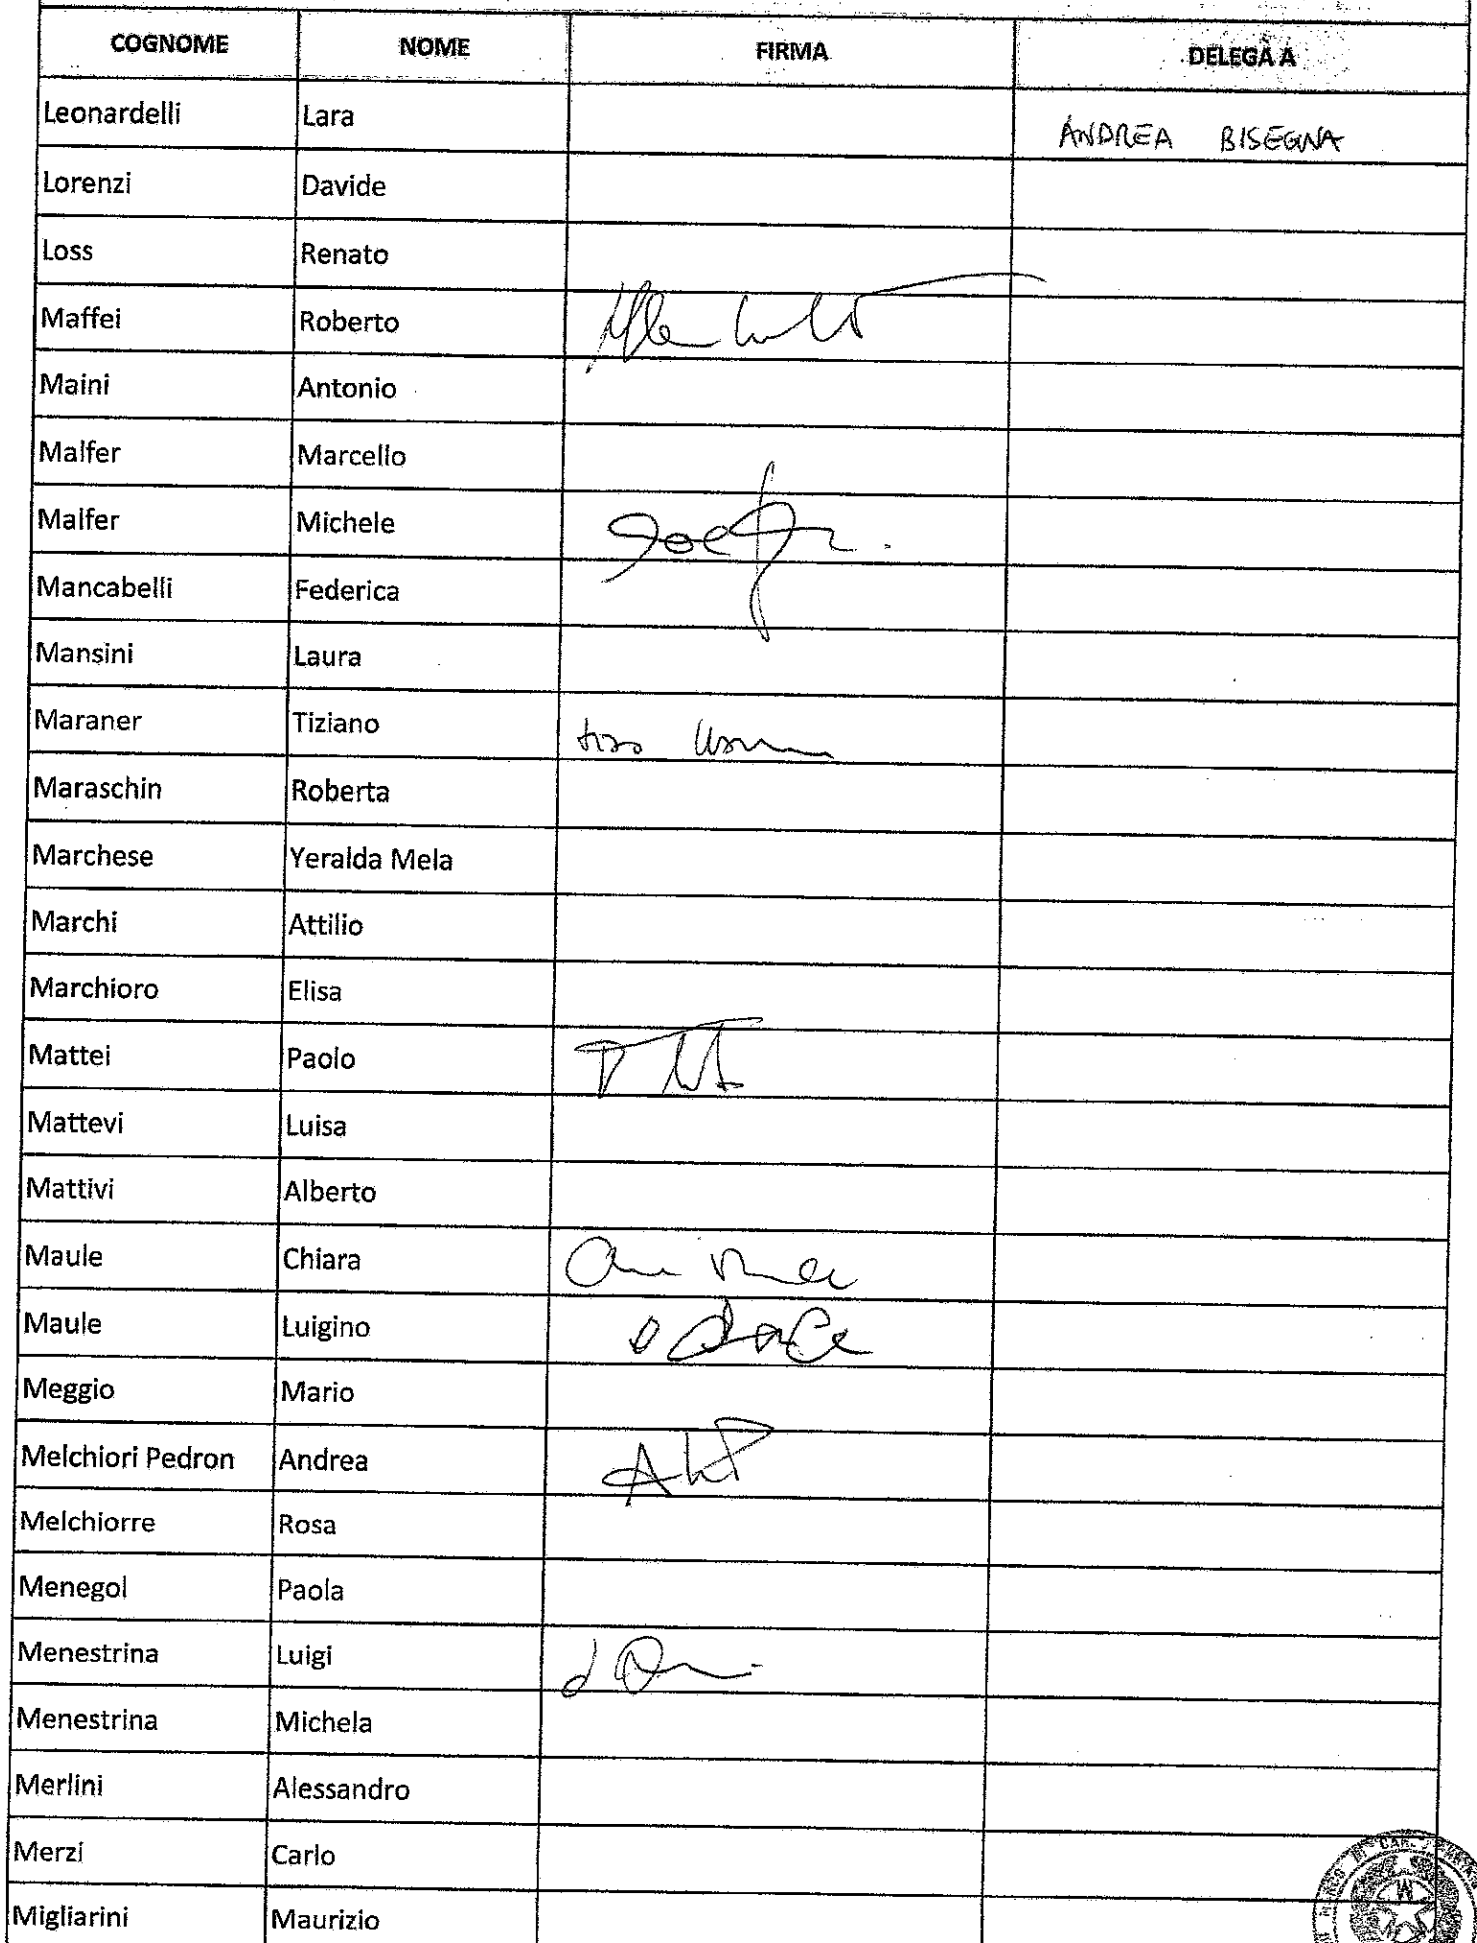 COGNOME NOME FIRMA DELEGA A
Leonardelli Lara ANDREA BISEGNA
Lorenzi Davide
Loss Renato
Maffei Roberto
Maini Antonio
Malfer Marcello
Malfer Michele
Mancabelli Federica
Mansini Laura
Maraner Tiziano
Maraschin Roberta
Marchese Yeralda Mela
Marchi Attilio
Marchioro Elisa
Mattei Paolo
Mattevi Luisa
Mattivi Alberto
Maule Chiara
Maule Luigino
Meggio Mario
Melchiori Pedron Andrea
Melchiorre Rosa
Menegol Paola
Menestrina Luigi
Menestrina Michela
Merlini Alessandro
Merzi Carlo
Migliarini Maurizio